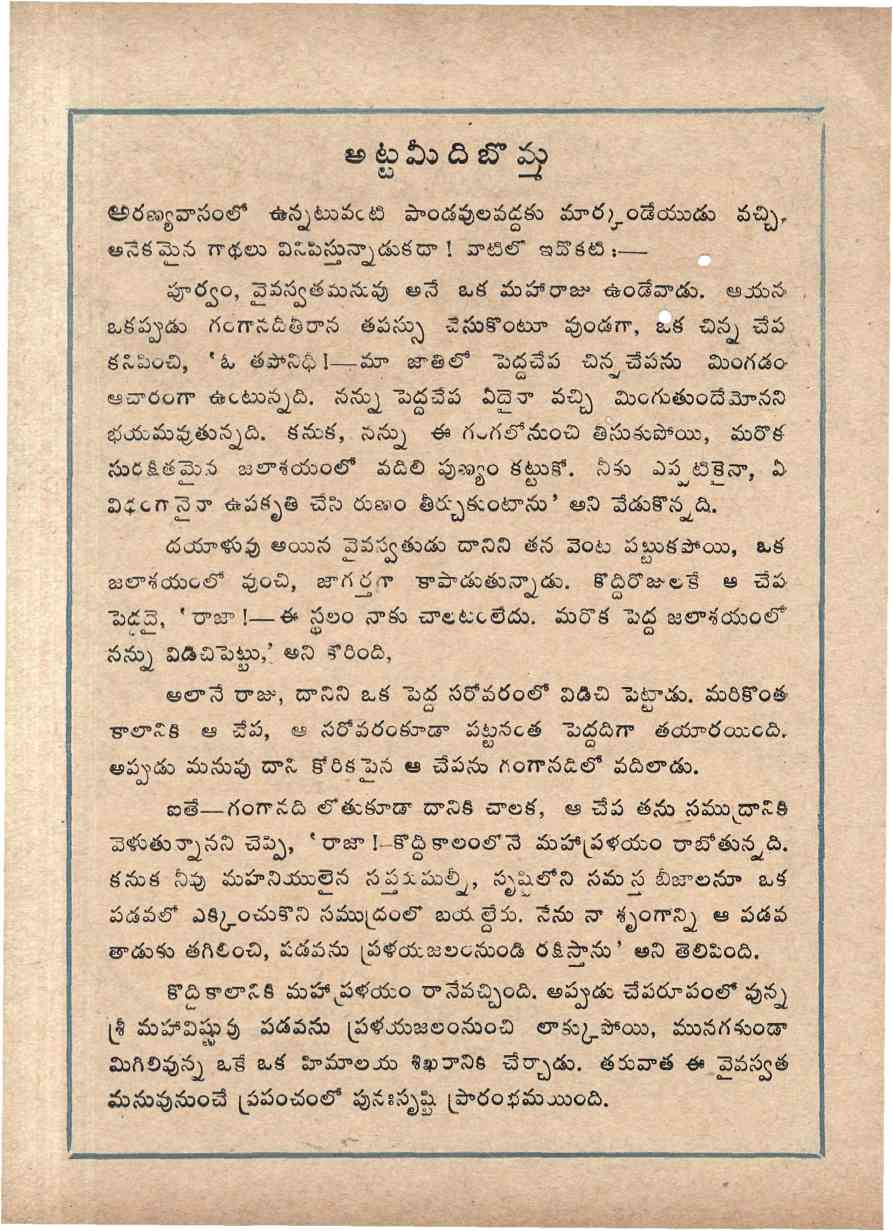 అట్టమీది బొమ్మ
అరణ్యవాసంలో ఉన్నటువంటి పాండవులవద్దకు మార్కండేయుడు వచ్చి,
అనేకమైన గాథలు వినిపిస్తున్నాడుకదా ! వాటిలో ఇదొకటి :—
పూర్వం, వైవస్వతమనువు అనే ఒక మహారాజు ఉండేవాడు. ఆయన
ఒకప్పుడు గంగానదీతీరాన తపస్సు చేసుకొంటూ వుండగా, ఒక చిన్న చేప
కనిపించి, ‘ ఓ తపోనిధీ !—మా జాతిలో పెద్దచేప చిన్నచేపను మింగడం
ఆచారంగా ఉంటున్నది. నన్ను పెద్దచేప ఏదైనా వచ్చి మింగుతుందేమోనని
భయమవుతున్నది. కనుక, నన్ను ఈ గంగలోనుంచి తీసుకుపోయి, మరొక
సురక్షితమైన జలాశయంలో వదిలి పుణ్యం కట్టుకో. నీకు ఎప్పటికైనా, ఏ
విధంగానైనా ఉపకృతి చేసి రుణం తీర్చుకుంటాను ’ అని వేడుకొన్నది.
దయాళువు అయిన వైవస్వతుడు దానిని తన వెంట పట్టుకపోయి, ఒక
జలాశయంలో వుంచి, జాగర్తగా కాపాడుతున్నాడు. కొద్దిరోజులకే ఆ చేప
పెద్దదై, ‘ రాజా !—ఈ స్థలం నాకు చాలటంలేదు. మరొక పెద్ద జలాశయంలో
నన్ను విడిచిపెట్టు,’ అని కోరింది,
అలానే రాజు, దానిని ఒక పెద్ద సరోవరంలో విడిచి పెట్టాడు. మరికొంత
కాలానికి ఆ చేప, ఆ సరోవరంకూడా పట్టనంత పెద్దదిగా తయారయింది.
అప్పుడు మనువు దాని కోరికపైన ఆ చేపను గంగానదిలో వదిలాడు.
ఐతే—గంగానది లోతుకూడా దానికి చాలక, ఆ చేప తను సముద్రానికి
వెళుతున్నానని చెప్పి, ‘ రాజా !–కొద్దికాలంలోనె మహాప్రళయం రాబోతున్నది.
కనుక నీవు మహనీయులైన సప్తఋషుల్నీ, సృష్టిలోని సమస్త బీజాలనూ ఒక
పడవలో ఎక్కించుకొని సముద్రంలో బయల్దేరు. నేను నా శృంగాన్ని ఆ పడవ
తాడుకు తగిలించి, పడవను ప్రళయజలంనుండి రక్షిస్తాను ’ అని తెలిపింది.
కొద్దికాలానికి మహాప్రళయం రానేవచ్చింది. అప్పుడు చేపరూపంలో వున్న
శ్రీ మహావిష్ణువు పడవను ప్రళయజలంనుంచి లాక్కుపోయి, మునగకుండా
మిగిలివున్న ఒకే ఒక హిమాలయ శిఖరానికి చేర్చాడు. తరువాత ఈ వైవస్వత
మనువునుంచే ప్రపంచంలో పునఃసృష్టి ప్రారంభమయింది.